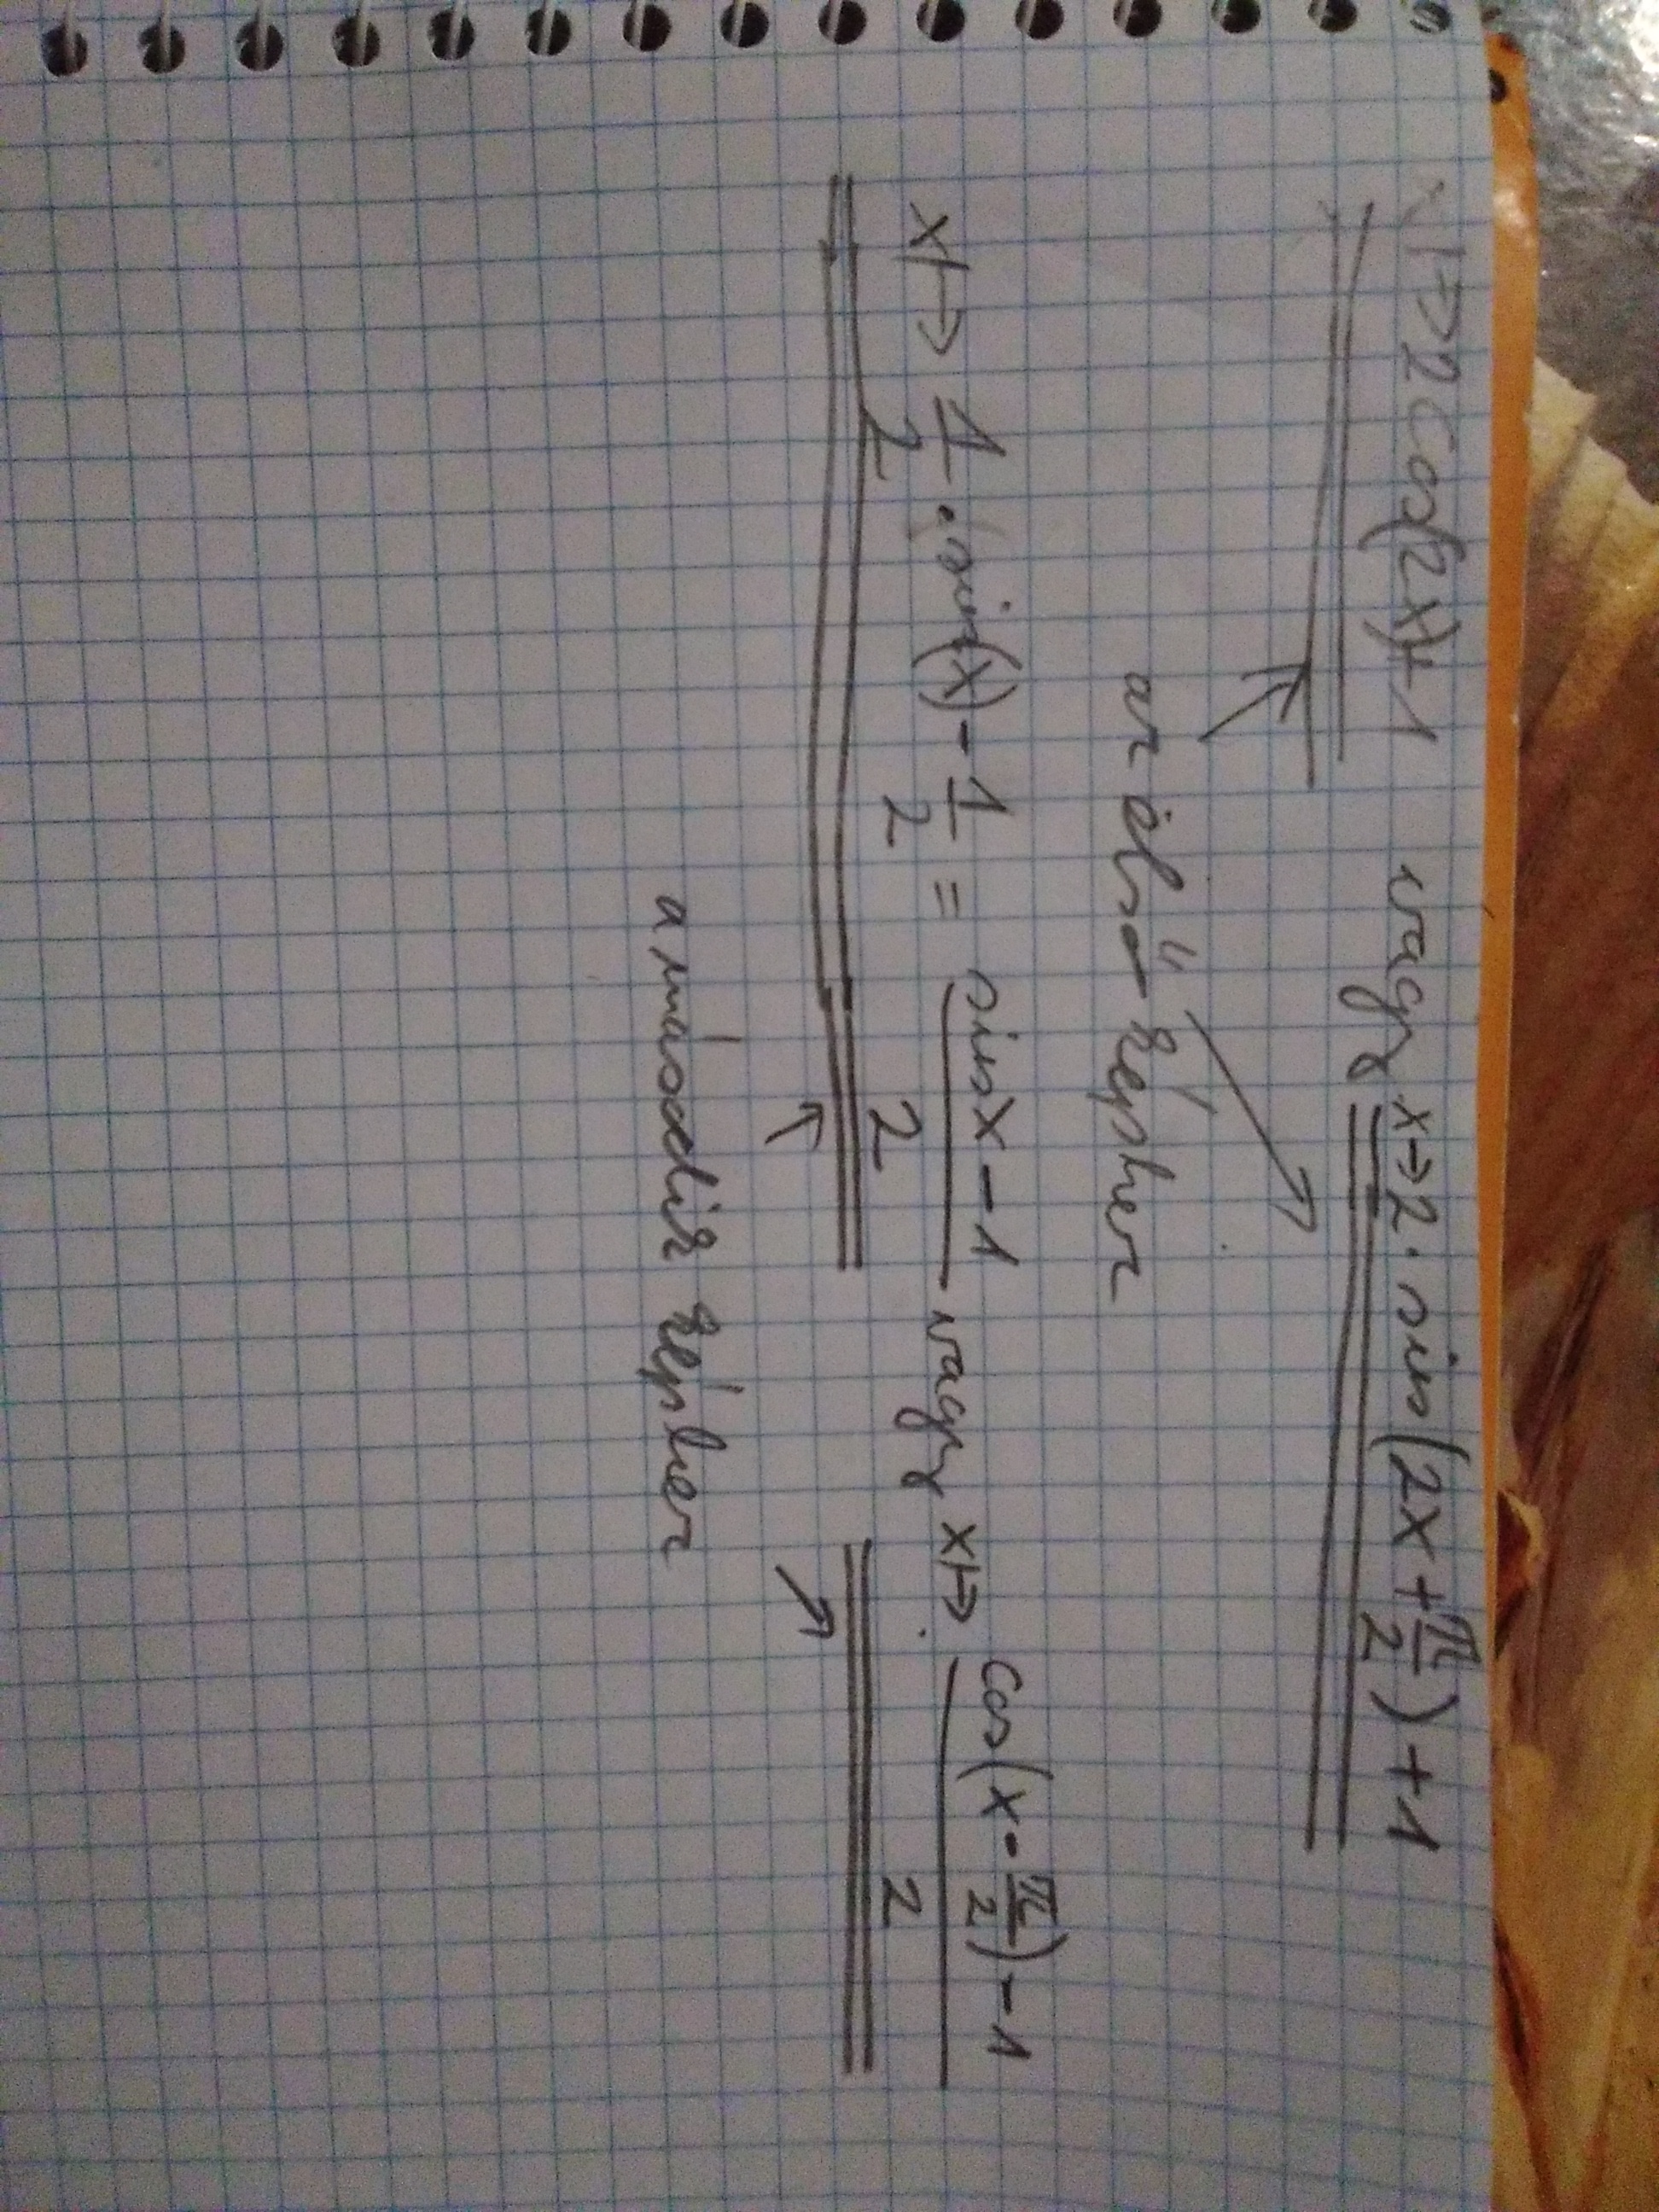 x ↦ 2cos(2x)+1 vagy x → 2 · sin(2x + π/2) + 1
az első képhez
x ↦ 1/2 · sin(x) - 1/2 = (sin x - 1)/2 vagy x ↦ (cos(x - π/2) - 1)/2
a második képhez